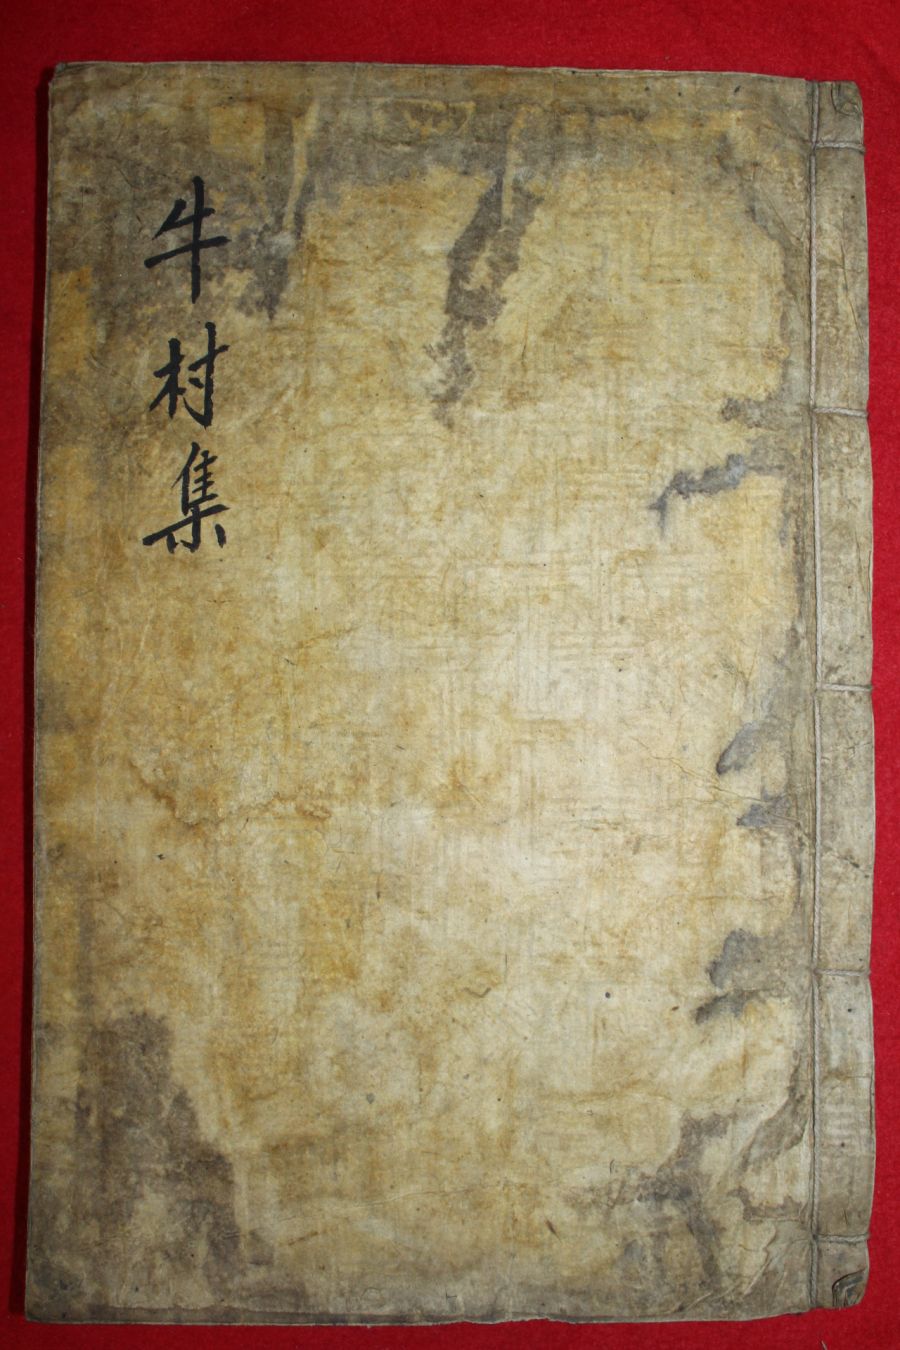 牛村集